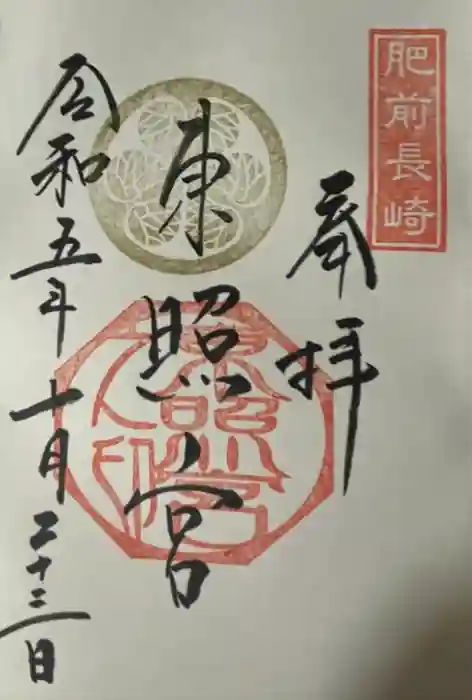 肥前長崎
奉拝
東照宮
令和五年十月二十二日